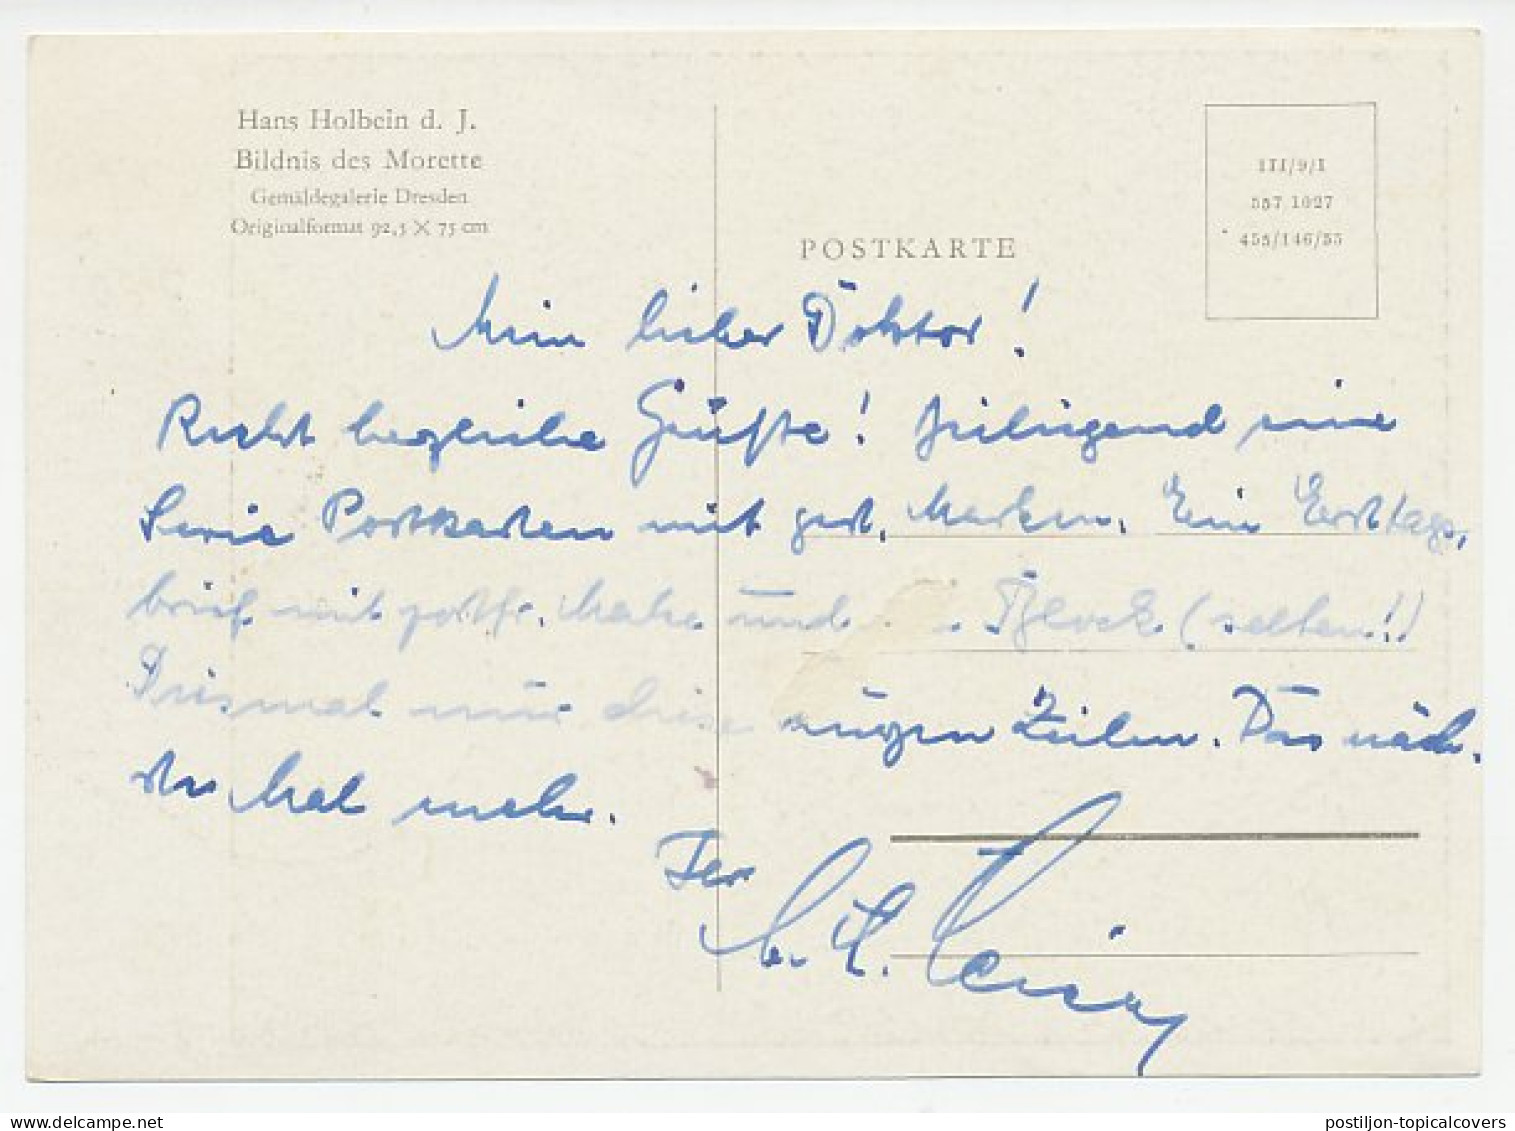 Hans Holbein d. J.
Bildnis des Morette
Gemäldegalerie Dresden
Originalformat 92,5 X 75 cm
III/9/I
557 1027
455/146/55
POSTKARTE
Mein lieber Doktor!
Recht herzliche Grüße! Beiliegend eine
Serie Postkarten mit gest. Marken. Ein Ersttags-
brief mit postfr. Marke und Block (selten!!)
Diesmal nur diese Zeilen. Das näch-
ste Mal mehr.
Ihr
postiljon-topicalcovers